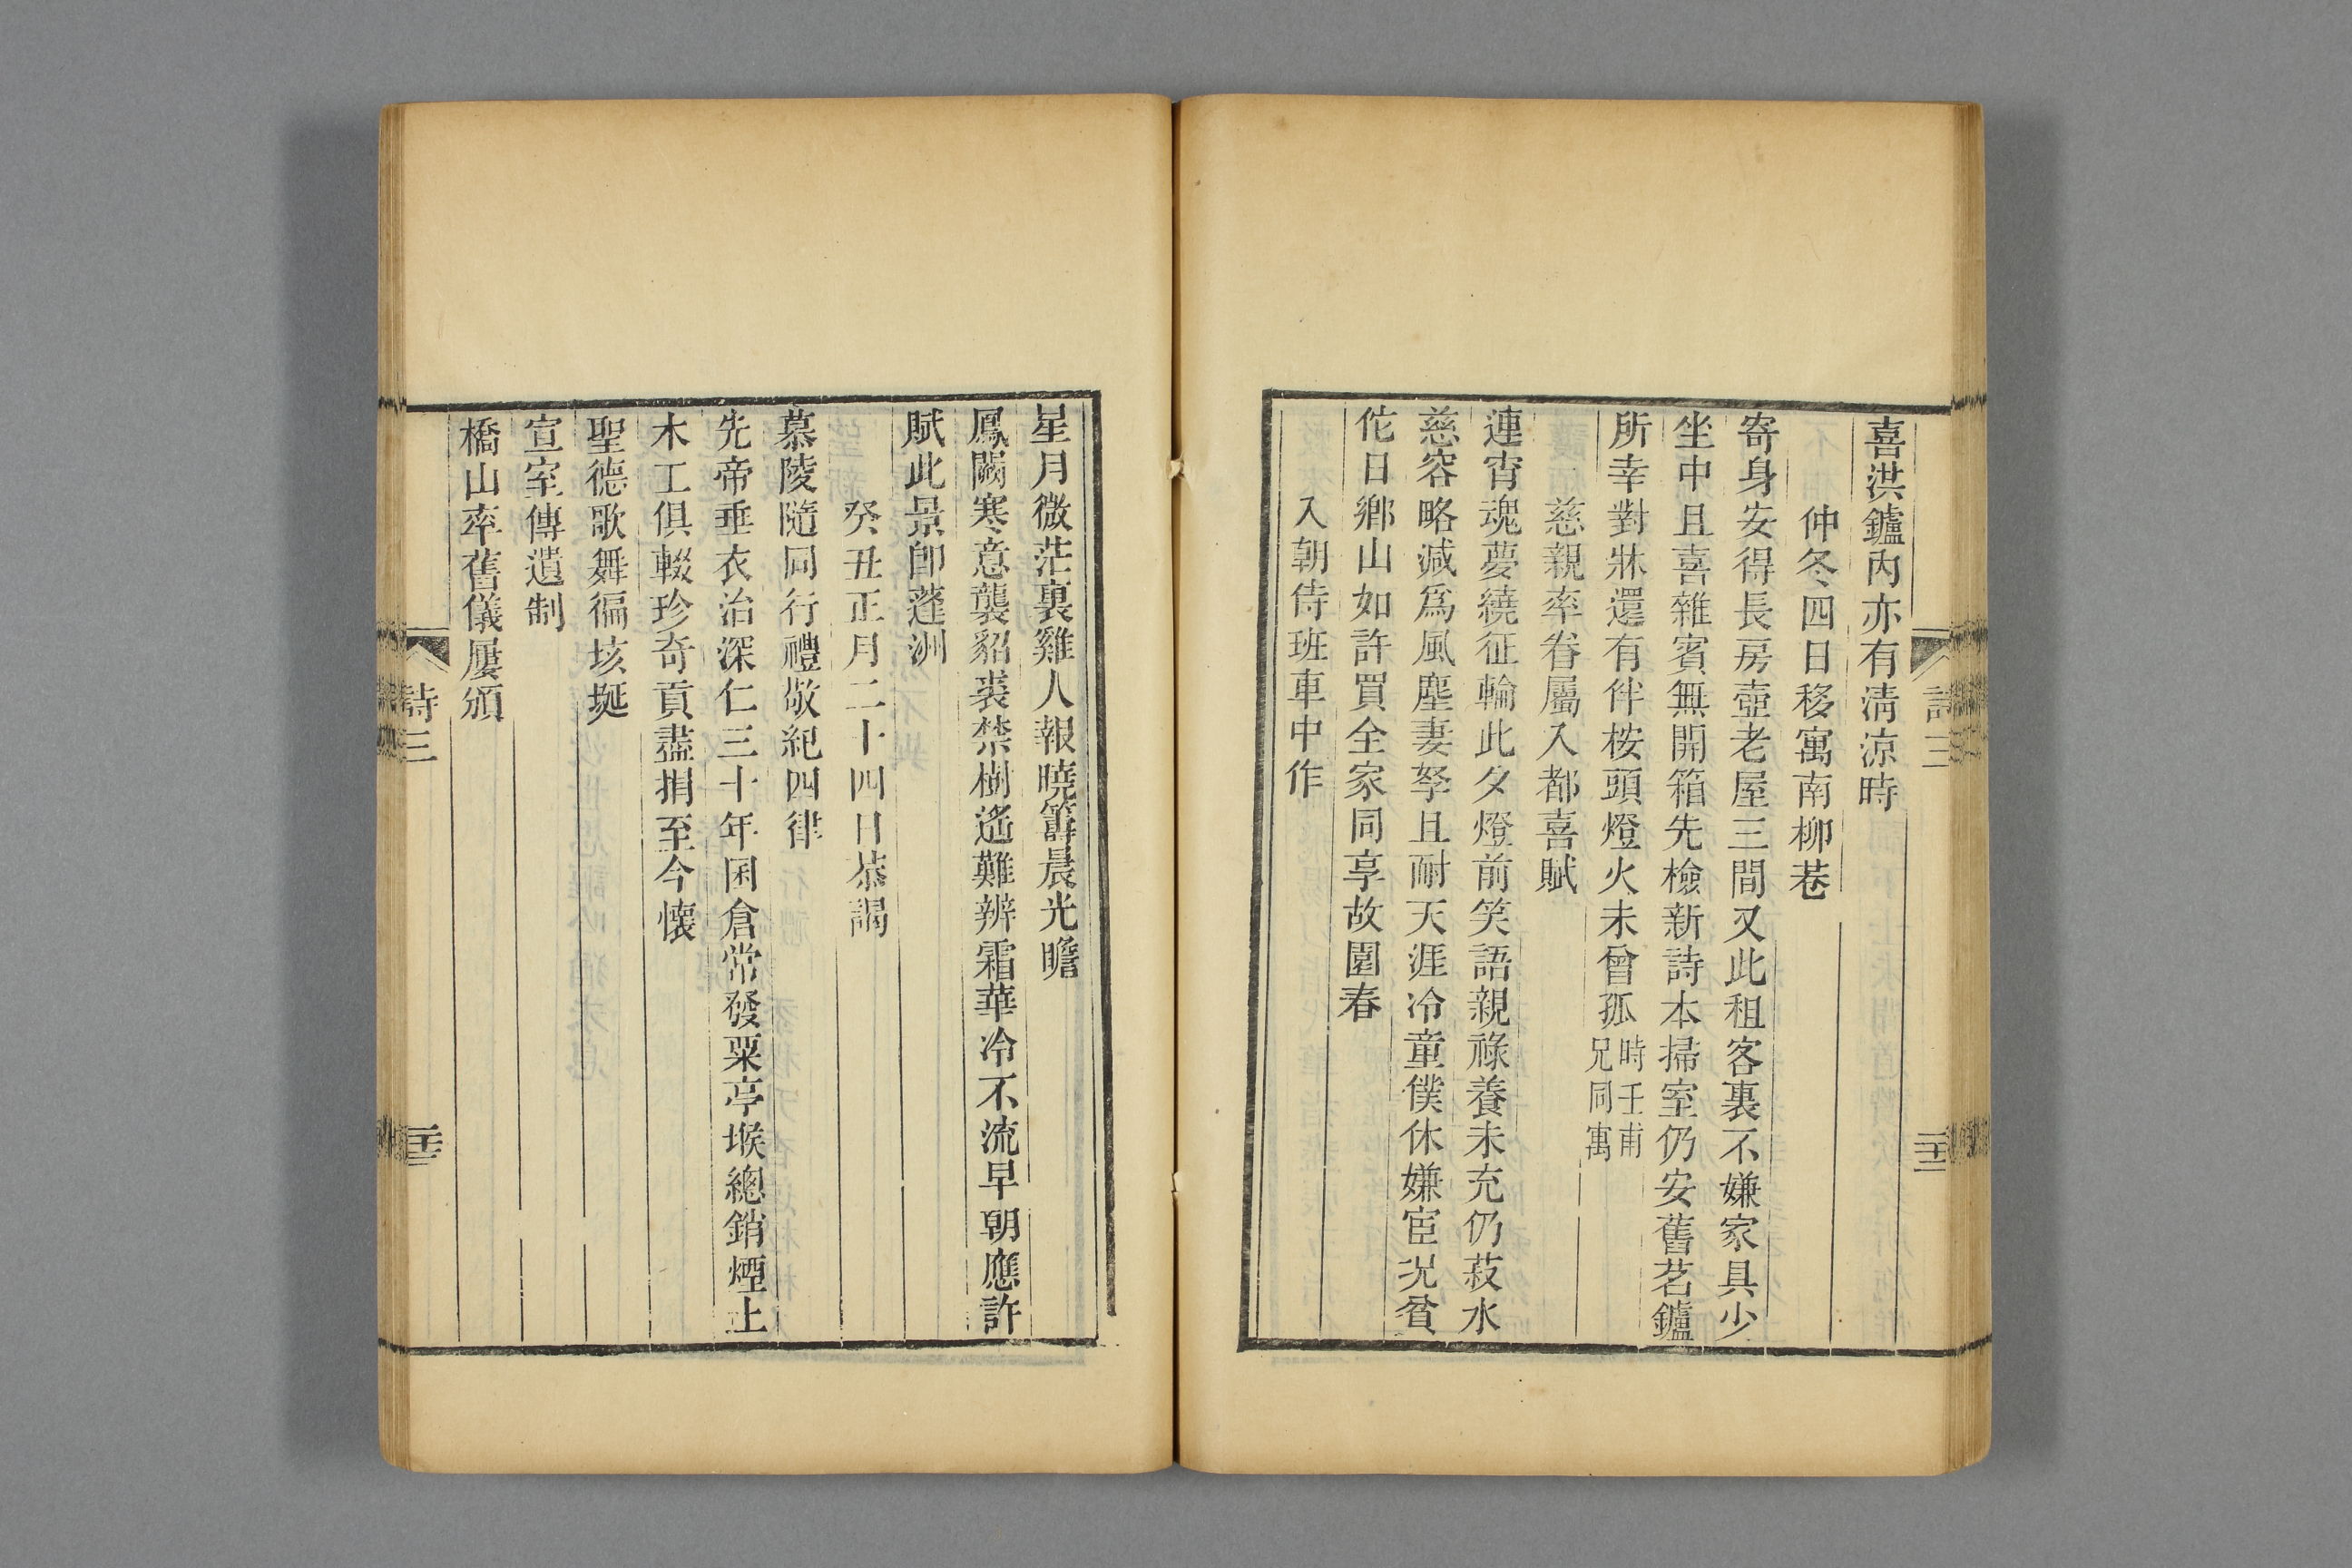 喜洪鑪內亦有淸涼時
仲冬四日移寓南柳巷
寄身安得長房壺老屋三間又此租客裏不嫌家具少
坐中且喜雜賓無開箱先檢新詩本掃室仍安舊茗鑪
所幸對牀還有伴桉頭燈火未曾孤時壬甫兄同寓
慈親率眷屬入都喜賦
連宵魂夢繞征輪此夕燈前笑語親祿養未充仍菽水
慈容略減爲風塵妻孥且耐天涯冷童僕休嫌宦況貧
佗日鄕山如許買全家同享故園春
入朝侍班車中作
星月微茫裏雞人報曉籌晨光瞻
鳳闕寒意襲貂裘禁樹遙難辨霜華冷不流早朝應許
賦此景卽蓬洲
癸丑正月二十四日恭謁
慕陵隨同行禮敬紀四律
先帝垂衣治深仁三十年囷倉常發粟亭堠總銷煙土
木工俱輟珍奇貢盡捐至今懷
聖德歌舞徧垓埏
宣室傳遺制
橋山率舊儀屢頒
詩三